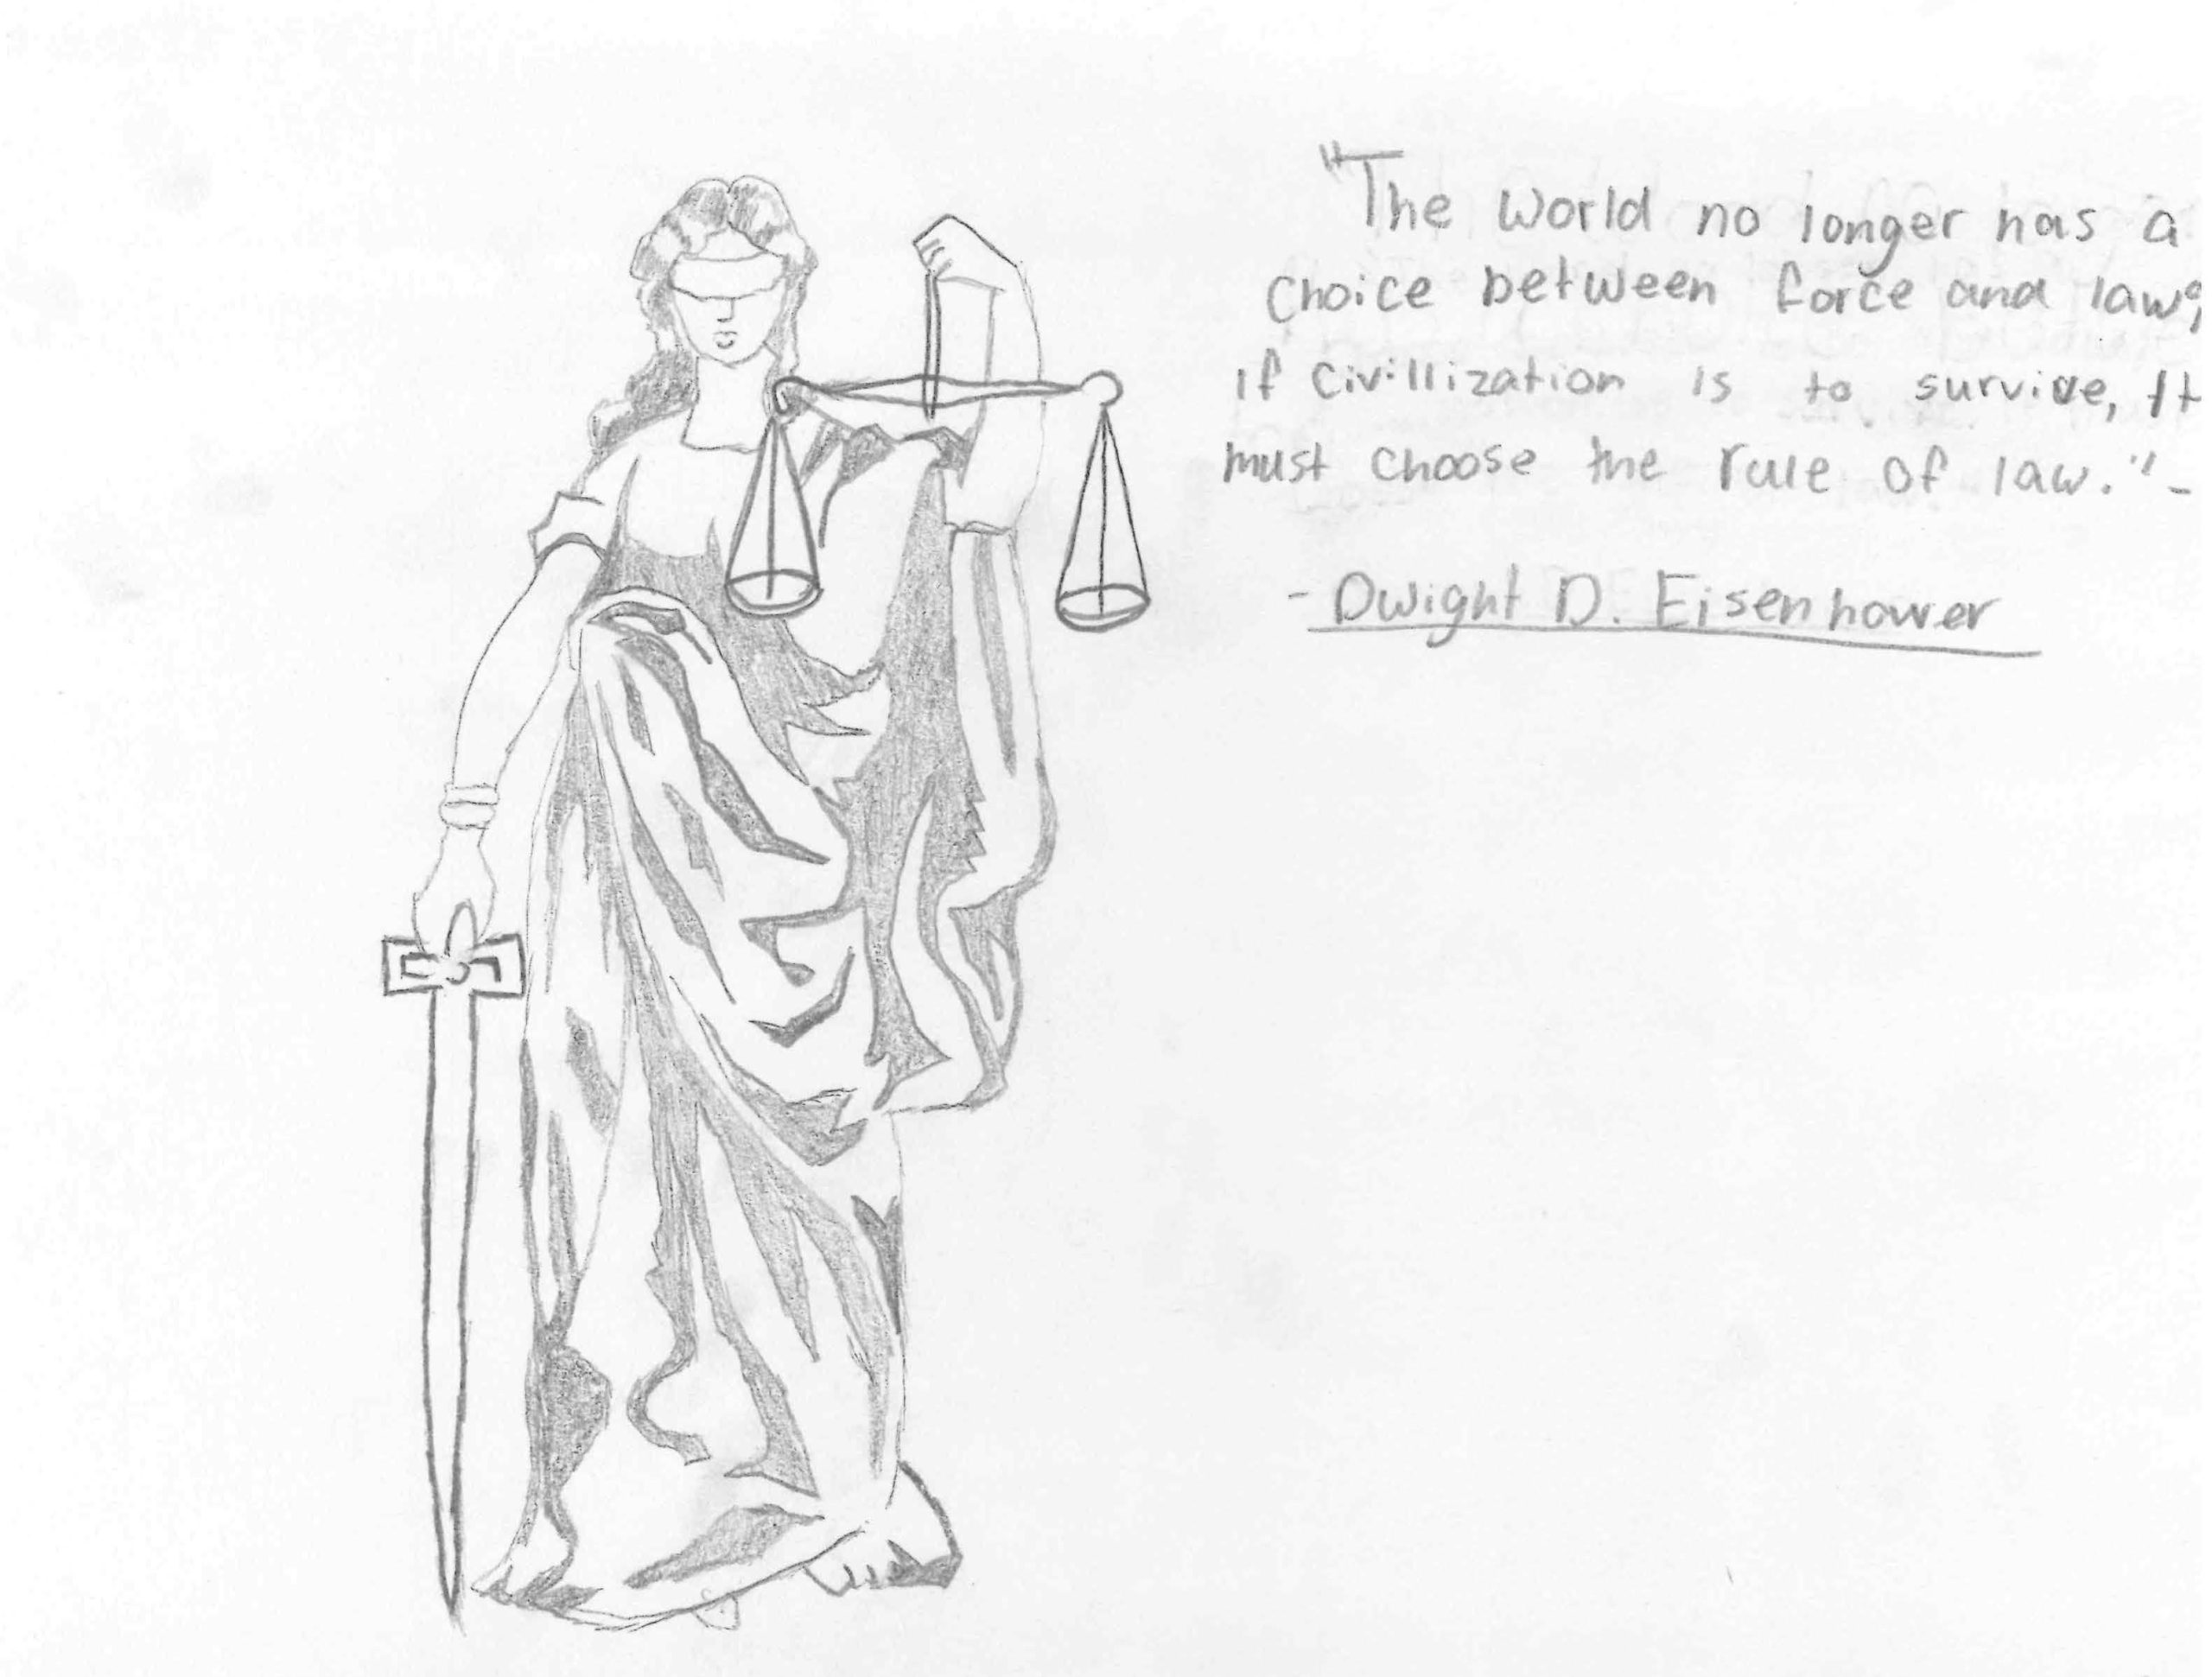 "The world no longer has a
choice between force and law;
if civillization is to survive, it
must choose the rule of law." -
- Dwight D. Eisenhower